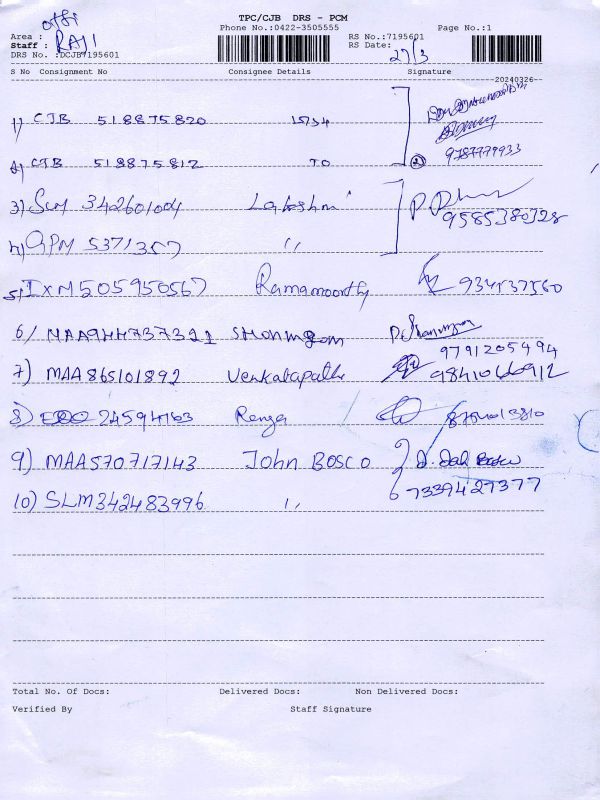 TPC/CJB DRS - PCM
Phone No.:0422-3505555 Page No.:1
Area :
Staff : RAJI
RS No.:7195601
DRS No. :DCJB7195601
RS Date: 27/3
S No Consignment No Consignee Details Signature
20240326
1) CJB 518875820
2) CJB 518875812 TO 2
9787779933
3) SLM 342601004 Lakshmi
9585380328
4) GPM 5371357 〃
5) IXM505950567 Ramamoorthy
6/ MAA944737321
9791205494
7) MAA865101892 Venkatapathi
9841066912
8) 24594163 Renga
9) MAA570717143 John BOSCO
10) SLM342483996 〃 7339427377
Total No. Of Docs: Delivered Docs: Non Delivered Docs:
Verified By Staff Signature